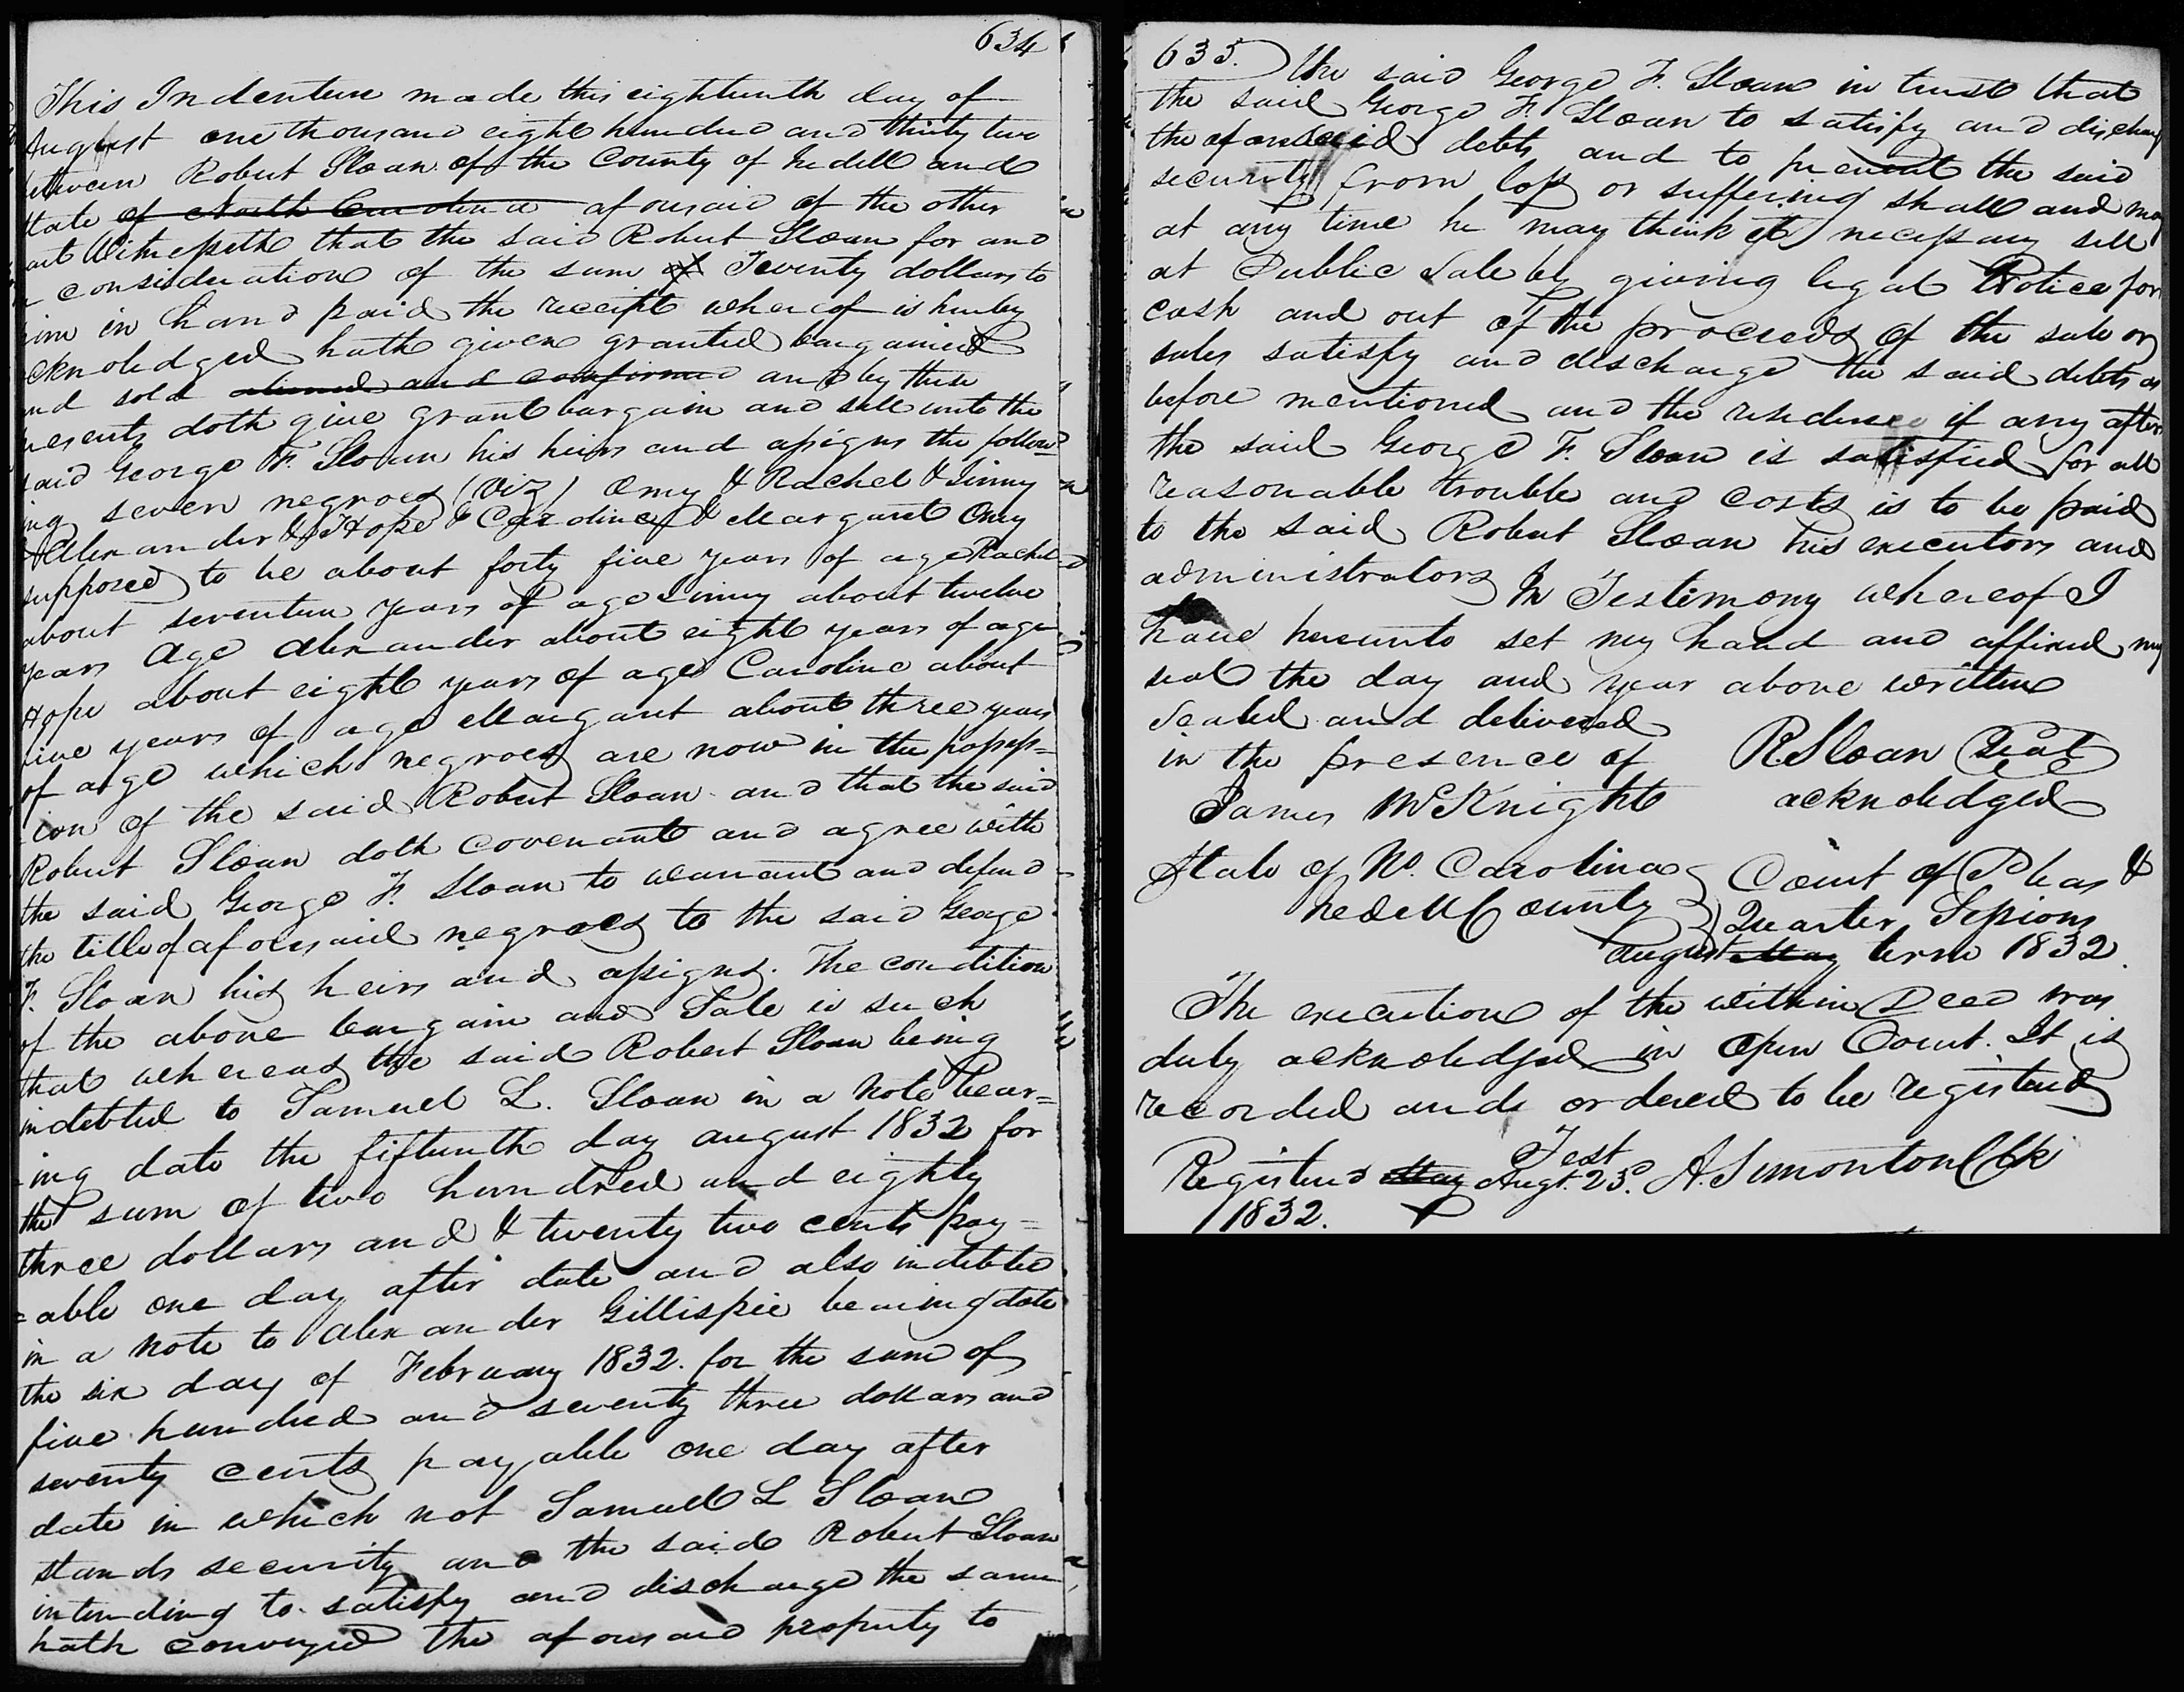 634
This Indenture made this eighteenth day of
August one thousand eight hundred and thirty two
between Robert Sloan of the County of Iredell and
State of North Carolina aforesaid of the other
part Witnesseth that the said Robert Sloan for and
in consideration of the sum of Twenty dollars to
him in hand paid the receipt whereof is hereby
acknoledged hath given granted bargained
and sold aliened and confirmed and by these
presents doth give grant bargain and sell unto the
said George F. Sloan his heirs and assigns the follow=
ing seven negroes (Viz) Omy & Rachel & Linny
& Alexander & Hope & Caroline & Margaret Omy
supposed to be about forty five years of age Rachel
about seventeen years of age Linny about twelve
years age Alexander about eight years of age
Hope about eight years of age Caroline about
five years of age Margaret about three years
of age which negroes are now in the possess=
ion of the said Robert Sloan and that the said
Robert Sloan doth covenant and agree with
the said George F. Sloan to warrant and defend
the title of aforesaid negroes to the said George
F. Sloan his heirs and assigns. The condition
of the above bargain and Sale is such
that whereas the said Robert Sloan being
indebted to Samuel L. Sloan in a note bear=
ing date the fifteenth day august 1832 for
the sum of two hundred and eighty
three dollars and & twenty two cents pay=
=able one day after date and also indebted
in a note to Alexander Gillispie bearing date
the six day of February 1832. for the sum of
five hundred and seventy three dollars and
seventy cents payable one day after
date in which not Samuel L Sloan
stands security and the said Robert Sloan
intending to satisfy and discharge the same
hath conveyed the aforesaid property to
635. the said George F. Sloan in trust that
the said George F. Sloan to satisfy and discharg
the aforesaid debts and to prevent the said
security from loss or suffering shall and may
at any time he may think it necessary sell
at Public Sale by giving legal Notice for
cash and out of the proceeds of the sale or
sales satisfy and discharge the said debts as
before mentioned and the residue if any after
the said George F. Sloan is satisfied for all
reasonable trouble and costs is to be paid
to the said Robert Sloan his executors and
administrators In Testimony whereof I
have hereunto set my hand and affixed my
seal the day and year above written
Sealed and delivered
in the presence of R. Sloan Seal
James McKnight acknoledged
State of No. Carolina Court of Pleas &
Iredell County Quarter Sessions
August May term 1832.
The execution of the within Deed was
duly acknoledged in Open Court. It is
recorded and ordered to be registered
Test
Registered May Augt. 23d. A. Simonton Clk
1832.